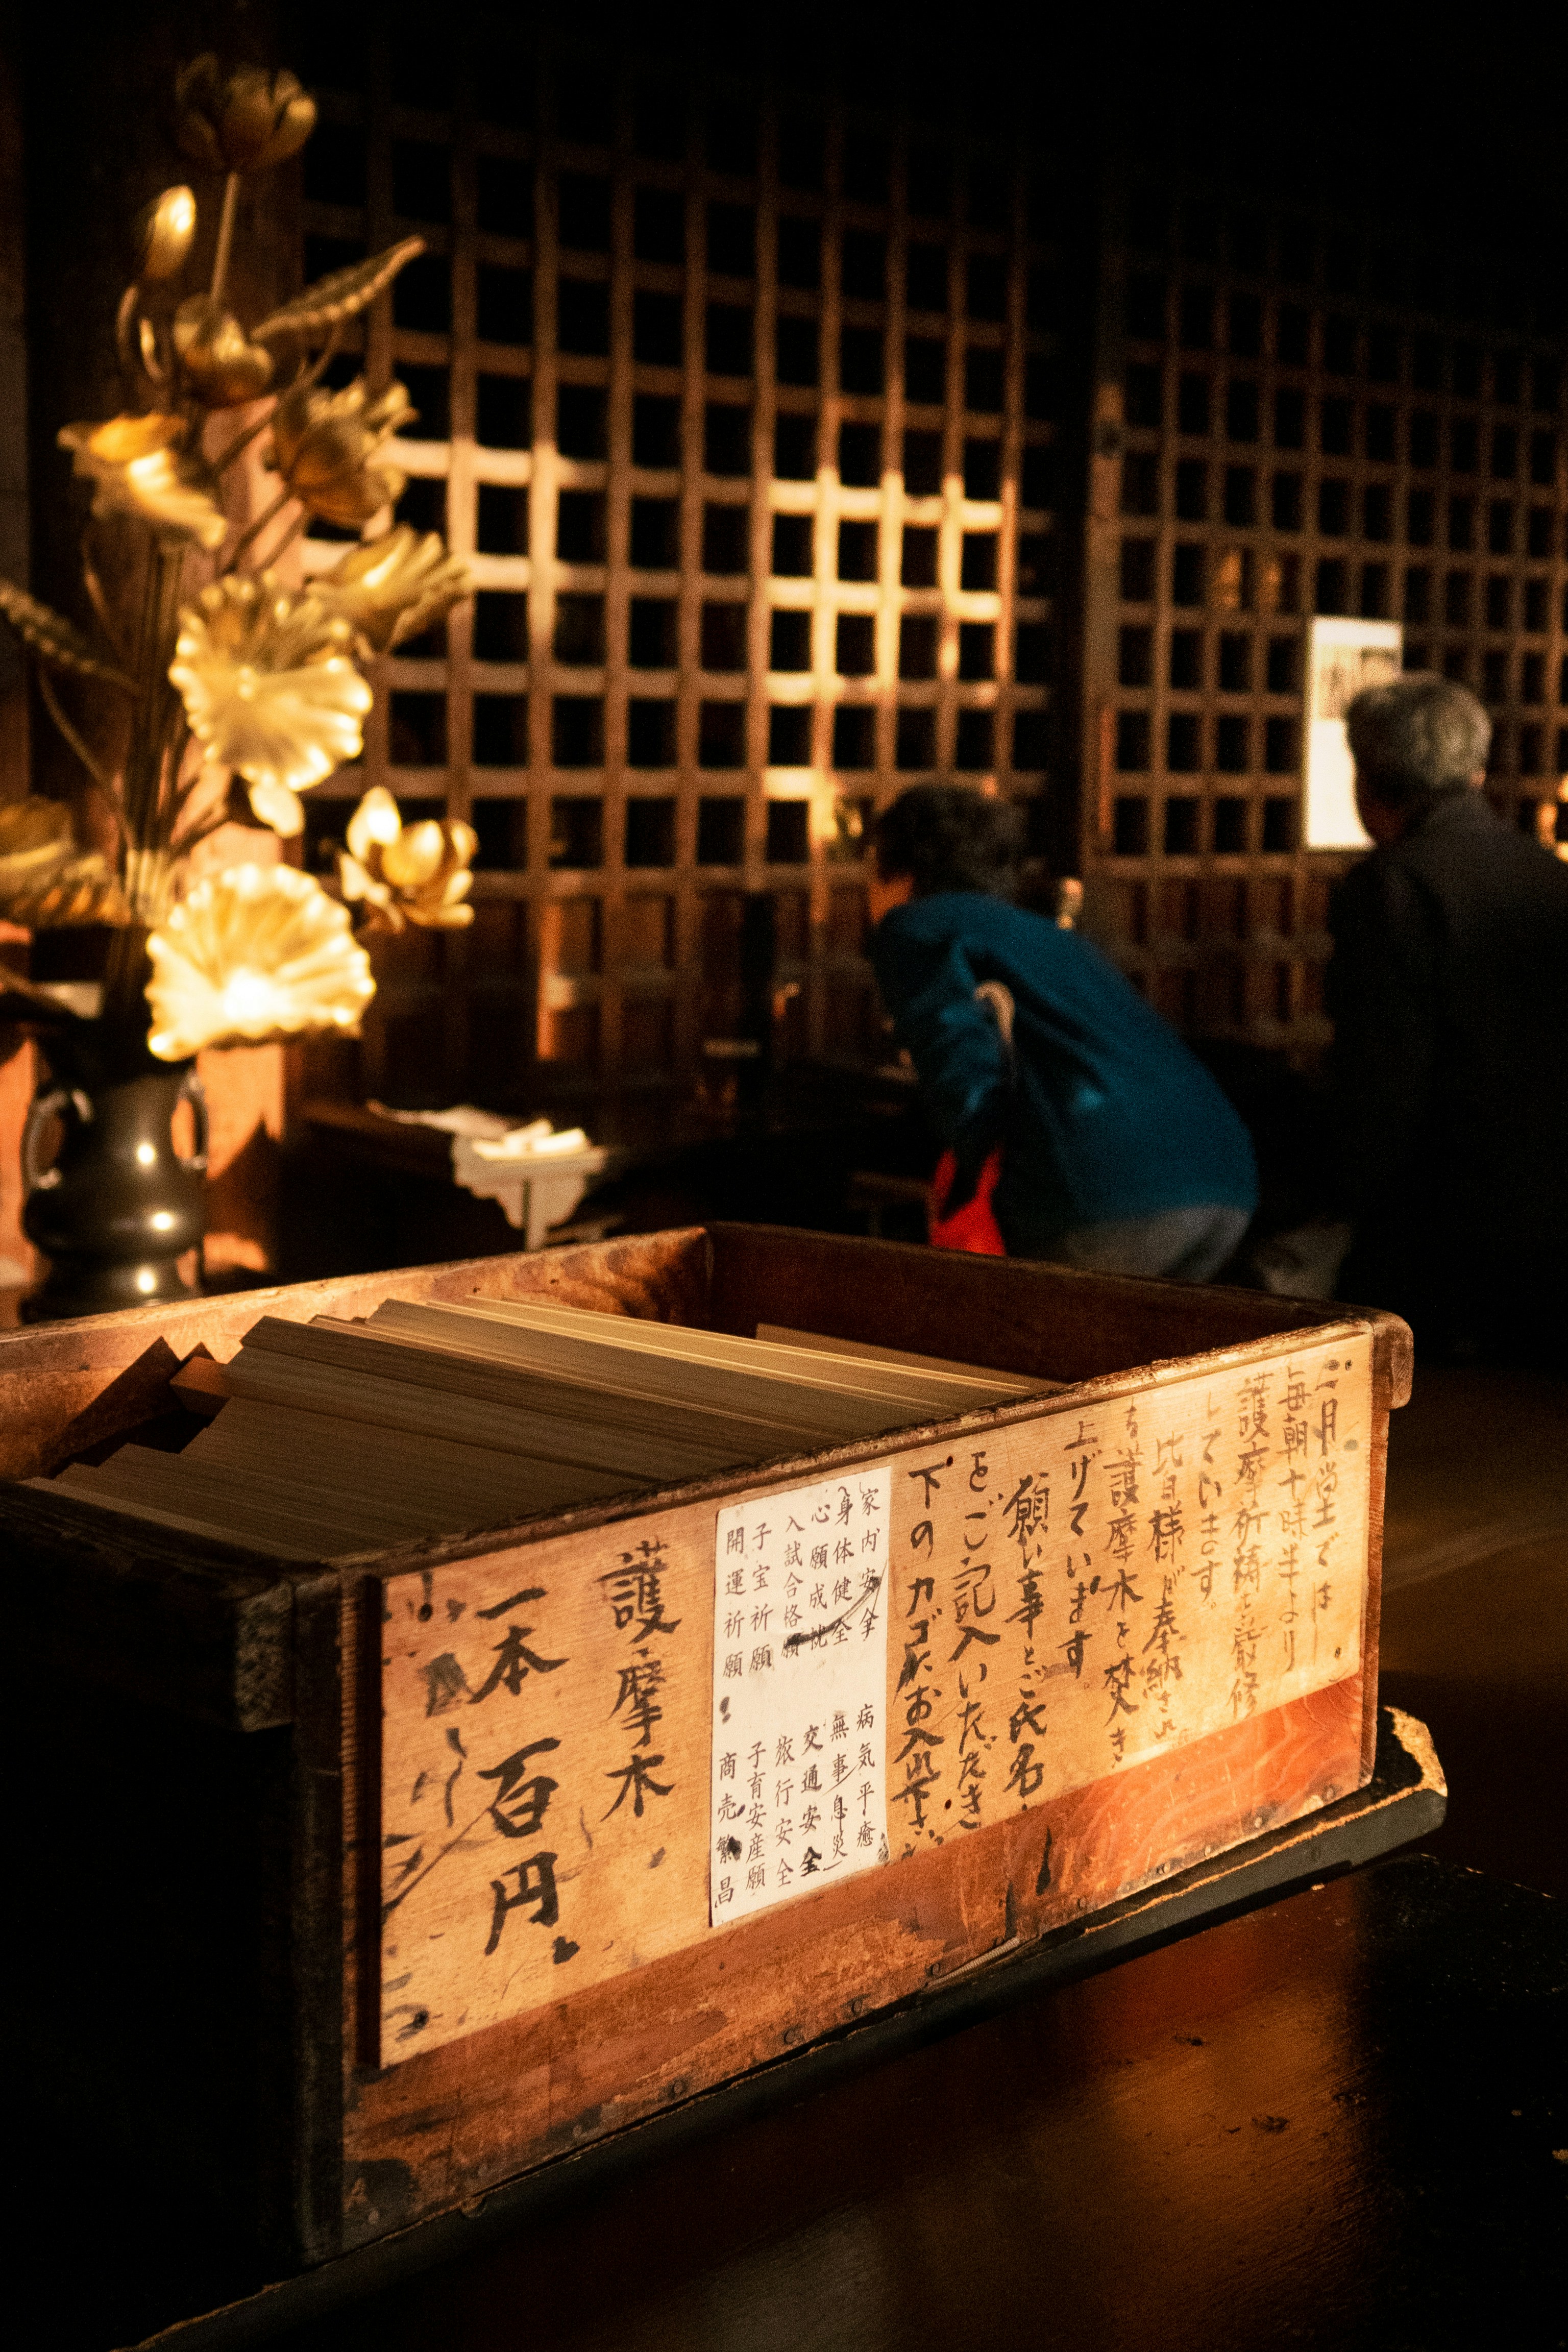 二月堂では
毎朝十時半より
護摩祈祷を厳修
しています。
皆様が奉納され
た護摩木を焚き
上げています。
願い事とご氏名
をご記入いただき
下のカゴにお入れ下さい
家内安全 病気平癒
身体健全 無事息災
心願成就 交通安全
入試合格願 旅行安全
子宝祈願 子育安産願
開運祈願 商売繁昌
護摩木
一本 百円